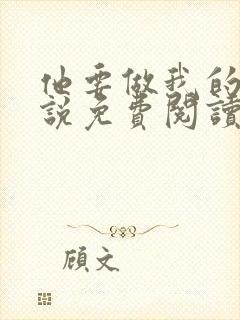 他要做我的
說免費閱讀
顧文